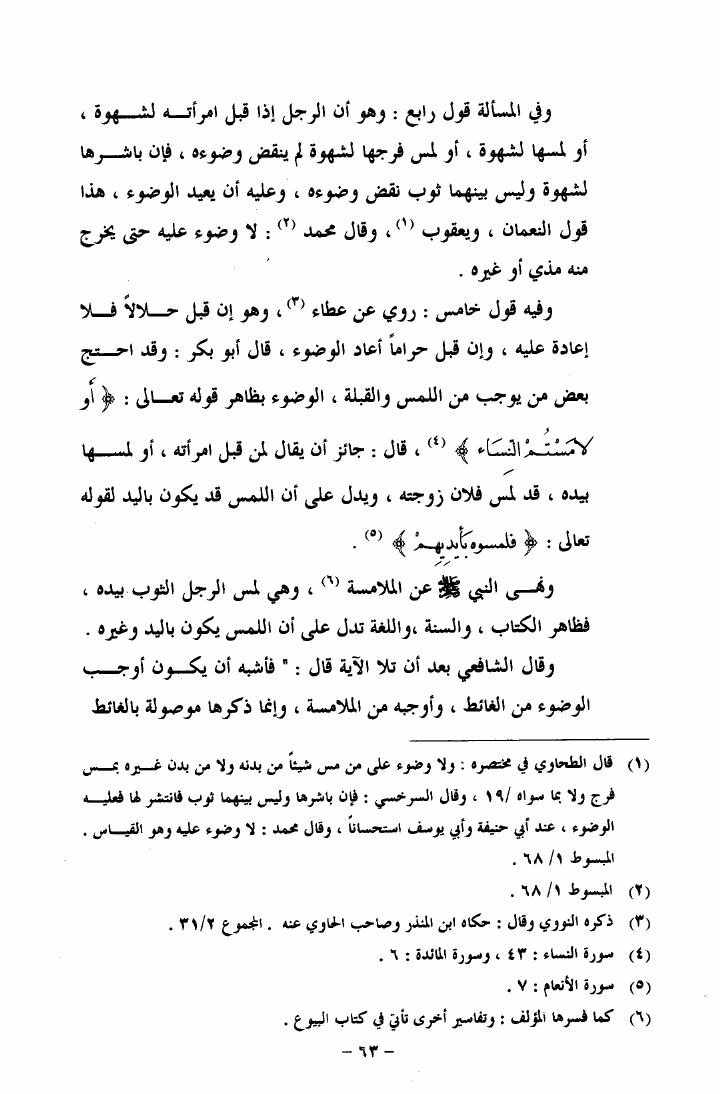 وفي المسألة قول رابع : وهو أن الرجل إذا قبل امرأتـــه لشـــهوة ،
أو لمسها لشهوة ، أو لمس فرجها لشهوة لم ينقض وضوءه ، فإن باشـــرها
لشهوة وليس بينهما ثوب نقض وضوءه ، وعليه أن يعيد الوضوء ، هذا
قول النعمان ، ويعقوب (١) ، وقال محمد (٢) : لا وضوء عليه حتى يخرج
منه مذي أو غيره .
وفيه قول خامس : روي عن عطاء (٣) ، وهو إن قبل حـــلالاً فـــلا
إعادة عليه ، وإن قبل حراماً أعاد الوضوء ، قال أبو بكر : وقد احـــتج
بعض من يوجب من اللمس والقبلة ، الوضوء بظاهر قوله تعـــالى : ﴿ أَو
لامَسْتُـمْ النِّسَاء ﴾ (٤) ، قال : جائز أن يقال لمن قبل امرأته ، أو لمســـها
بيده ، قد لمس فلان زوجته ، ويدل على أن اللمس قد يكون باليد لقوله
تعالى : ﴿ فلمسوه بأيديهمْ ﴾ (٥) .
ونهـــى النبي ﷺ عن الملامسة (٦) ، وهي لمس الرجل الثوب بيده ،
فظاهر الكتاب ، والسنة ،واللغة تدل على أن اللمس يكون باليد وغيره .
وقال الشافعي بعد أن تلا الآية قال : " فأشبه أن يكـــون أوجـــب
الوضوء من الغائط ، وأوجبه من الملامسة ، وإنما ذكرها موصولة بالغائط
(١) قال الطحاوي في مختصره : ولا وضوء على من مس شيئاً من بدنه ولا من بدن غـــيره بمـــس
فرج ولا بما سواه /١٩ ، وقال السرخسي : فإن باشرها وليس بينهما ثوب فانتشر لها فعليـــه
الوضوء ، عند أبي حنيفة وأبي يوسف استحساناً ، وقال محمد : لا وضوء عليه وهو القيـــاس .
المبسوط ١/ ٦٨ .
(٢) المبسوط ١/ ٦٨ .
(٣) ذكره النووي وقال : حكاه ابن المنذر وصاحب الحاوي عنه . المجموع ٣١/٢ .
(٤) سورة النساء : ٤٣ ، وسورة المائدة : ٦ .
(٥) سورة الأنعام : ٧ .
(٦) كما فسرها المؤلف : وتفاسير أخرى تأتي في كتاب البيوع .
– ٦٣ –